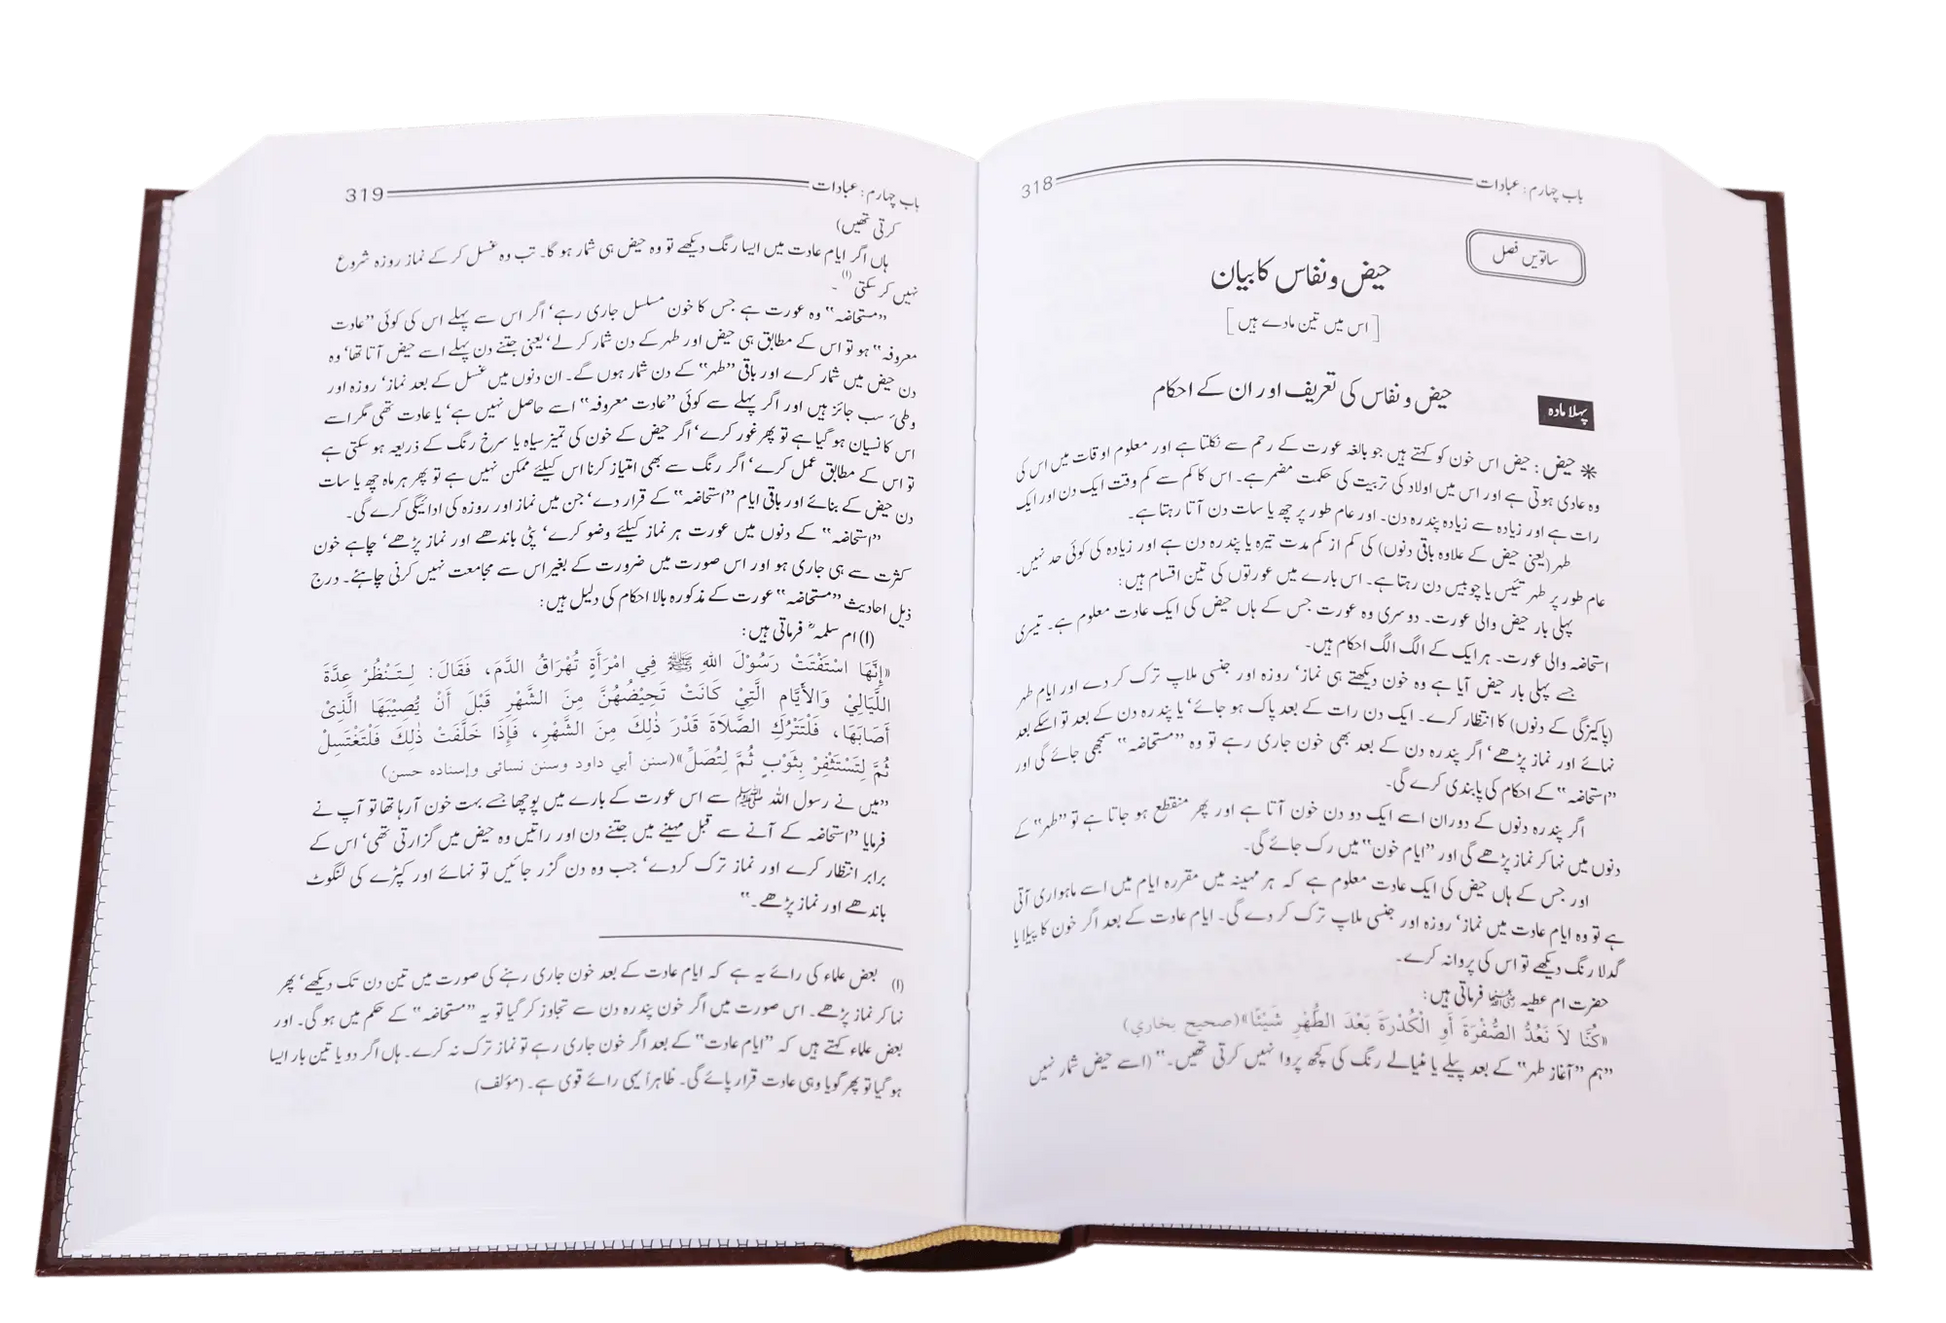 باب چہارم: عبادات 318
ساتویں فصل
حیض و نفاس کا بیان
[اس میں تین مادے ہیں]
پہلا مادہ
حیض و نفاس کی تعریف اور ان کے احکام
* حیض: حیض اس خون کو کہتے ہیں جو بالغہ عورت کے رحم سے نکلتا ہے اور معلوم اوقات میں اس کی
وہ عادی ہوتی ہے اور اس میں اولاد کی تربیت کی حکمت مضمر ہے۔ اس کا کم سے کم وقت ایک دن اور ایک
رات ہے اور زیادہ سے زیادہ پندرہ دن۔ اور عام طور پر چھ یا سات دن آتا رہتا ہے۔
طہر (یعنی حیض کے علاوہ باقی دنوں) کی کم از کم مدت تیرہ یا پندرہ دن ہے اور زیادہ کی کوئی حد نہیں۔
عام طور پر طہر تئیس یا چوبیس دن رہتا ہے۔ اس بارے میں عورتوں کی تین اقسام ہیں:
پہلی بار حیض والی عورت۔ دوسری وہ عورت جس کے ہاں حیض کی ایک عادت معلوم ہے۔ تیسری
استحاضہ والی عورت۔ ہر ایک کے الگ الگ احکام ہیں۔
جسے پہلی بار حیض آیا ہے وہ خون دیکھتے ہی نماز‘ روزہ اور جنسی ملاپ ترک کر دے اور ایام طہر
(پاکیزگی کے دنوں) کا انتظار کرے۔ ایک دن رات کے بعد پاک ہو جائے‘ یا پندرہ دن کے بعد تو اسکے بعد
نہائے اور نماز پڑھے‘ اگر پندرہ دن کے بعد بھی خون جاری رہے تو وہ ”مستحاضہ“ سمجھی جائے گی اور
”استحاضہ“ کے احکام کی پابندی کرے گی۔
اگر پندرہ دنوں کے دوران اسے ایک دو دن خون آتا ہے اور پھر منقطع ہو جاتا ہے تو ”طہر“ کے
دنوں میں نہا کر نماز پڑھے گی اور ”ایام خون“ میں رک جائے گی۔
اور جس کے ہاں حیض کی ایک عادت معلوم ہے کہ ہر مہینہ میں مقررہ ایام میں اسے ماہواری آتی
ہے تو وہ ایام عادت میں نماز‘ روزہ اور جنسی ملاپ ترک کر دے گی۔ ایام عادت کے بعد اگر خون کا پیلا یا
گدلا رنگ دیکھے تو اس کی پروا نہ کرے۔
حضرت ام عطیہ رضی اللہ عنہا فرماتی ہیں:
«كُنَّا لاَ نَعُدُّ الصُّفْرَةَ أَوِ الْكُدْرَةَ بَعْدَ الطُّهْرِ شَيْئًا»(صحیح بخاري)
”ہم ”آغاز طہر“ کے بعد پیلے یا مٹیالے رنگ کی کچھ پروا نہیں کرتی تھیں۔“ (اسے حیض شمار نہیں
باب چہارم: عبادات 319
کرتی تھیں)
ہاں اگر ایام عادت میں ایسا رنگ دیکھے تو وہ حیض ہی شمار ہو گا۔ تب وہ غسل کر کے نماز روزہ شروع
نہیں کر سکتی (۱)۔
”مستحاضہ“ وہ عورت ہے جس کا خون مسلسل جاری رہے‘ اگر اس سے پہلے اس کی کوئی ”عادت
معروفہ“ ہو تو اس کے مطابق ہی حیض اور طہر کے دن شمار کر لے‘ یعنی جتنے دن پہلے اسے حیض آتا تھا‘ وہ
دن حیض میں شمار کرے اور باقی ”طہر“ کے دن شمار ہوں گے۔ ان دنوں میں غسل کے بعد نماز‘ روزہ اور
وطیٔ سب جائز ہیں اور اگر پہلے سے کوئی ”عادت معروفہ“ اسے حاصل نہیں ہے‘ یا عادت تھی مگر اسے
اس کا نسیان ہو گیا ہے تو پھر غور کرے‘ اگر حیض کے خون کی تمیز سیاہ یا سرخ رنگ کے ذریعہ ہو سکتی ہے
تو اس کے مطابق عمل کرے‘ اگر رنگ سے بھی امتیاز کرنا اس کیلئے ممکن نہیں ہے تو پھر ہر ماہ چھ یا سات
دن حیض کے بنائے اور باقی ایام ”استحاضہ“ کے قرار دے‘ جن میں نماز اور روزہ کی ادائیگی کرے گی۔
”استحاضہ“ کے دنوں میں عورت ہر نماز کیلئے وضو کرے‘ پٹی باندھے اور نماز پڑھے‘ چاہے خون
کثرت سے ہی جاری ہو اور اس صورت میں ضرورت کے بغیر اس سے مجامعت نہیں کرنی چاہئے۔ درج
ذیل احادیث ”مستحاضہ“ عورت کے مذکورہ بالا احکام کی دلیل ہیں:
(۱) ام سلمہ ؓ فرماتی ہیں:
«إِنَّهَا اسْتَفْتَتْ رَسُوْلَ اللهِ ﷺ فِي امْرَأَةٍ تُهْرَاقُ الدَّمَ، فَقَالَ: لِتَنْظُرْ عِدَّةَ
اللَّيَالِيْ وَالأَيَّامِ الَّتِيْ كَانَتْ تَحِيْضُهُنَّ مِنَ الشَّهْرِ قَبْلَ أَنْ يُصِيْبَهَا الَّذِىْ
أَصَابَهَا، فَلْتَتْرُكِ الصَّلاَةَ قَدْرَ ذٰلِكَ مِنَ الشَّهْرِ، فَإِذَا خَلَّفَتْ ذٰلِكَ فَلْتَغْتَسِلْ
ثُمَّ لِتَسْتَثْفِرْ بِثَوْبٍ ثُمَّ لِتُصَلِّ»(سنن أبي داود وسنن نسائی وإسناده حسن)
”میں نے رسول اللہ ﷺ سے اس عورت کے بارے میں پوچھا جسے بہت خون آرہا تھا تو آپ نے
فرمایا ”استحاضہ کے آنے سے قبل مہینے میں جتنے دن اور راتیں وہ حیض میں گزارتی تھی‘ اس کے
برابر انتظار کرے اور نماز ترک کردے‘ جب وہ دن گزر جائیں تو نہائے اور کپڑے کی لنگوٹ
باندھے اور نماز پڑھے۔“
(۱) بعض علماء کی رائے یہ ہے کہ ایام عادت کے بعد خون جاری رہنے کی صورت میں تین دن تک دیکھے‘ پھر
نہا کر نماز پڑھے۔ اس صورت میں اگر خون پندرہ دن سے تجاوز کر گیا تو یہ ”مستحاضہ“ کے حکم میں ہو گی۔ اور
بعض علماء کہتے ہیں کہ ”ایام عادت“ کے بعد اگر خون جاری رہے تو نماز ترک نہ کرے۔ ہاں اگر دو یا تین بار ایسا
ہو گیا تو پھر گویا وہی عادت قرار پائے گی۔ ظاہراً یہی رائے قوی ہے۔ (مؤلف)